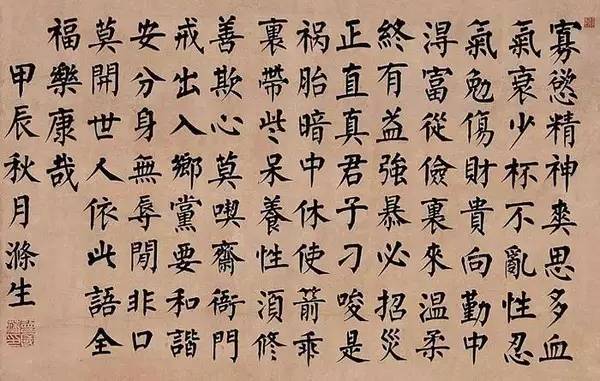 寡慾精神爽思多血
氣衰少杯不亂性忍
氣勉傷財貴向勤中
淂富從儉裏來温柔
終有益強暴必招災
正直真君子刁唆是
祸胎暗中休使箭乖
裏帶些呆養性須修
善欺心莫喫齋衙門
戒出入鄉黨要和諧
安分身無辱閒非口
莫開世人依此語全
福樂康哉
甲辰秋月滌生